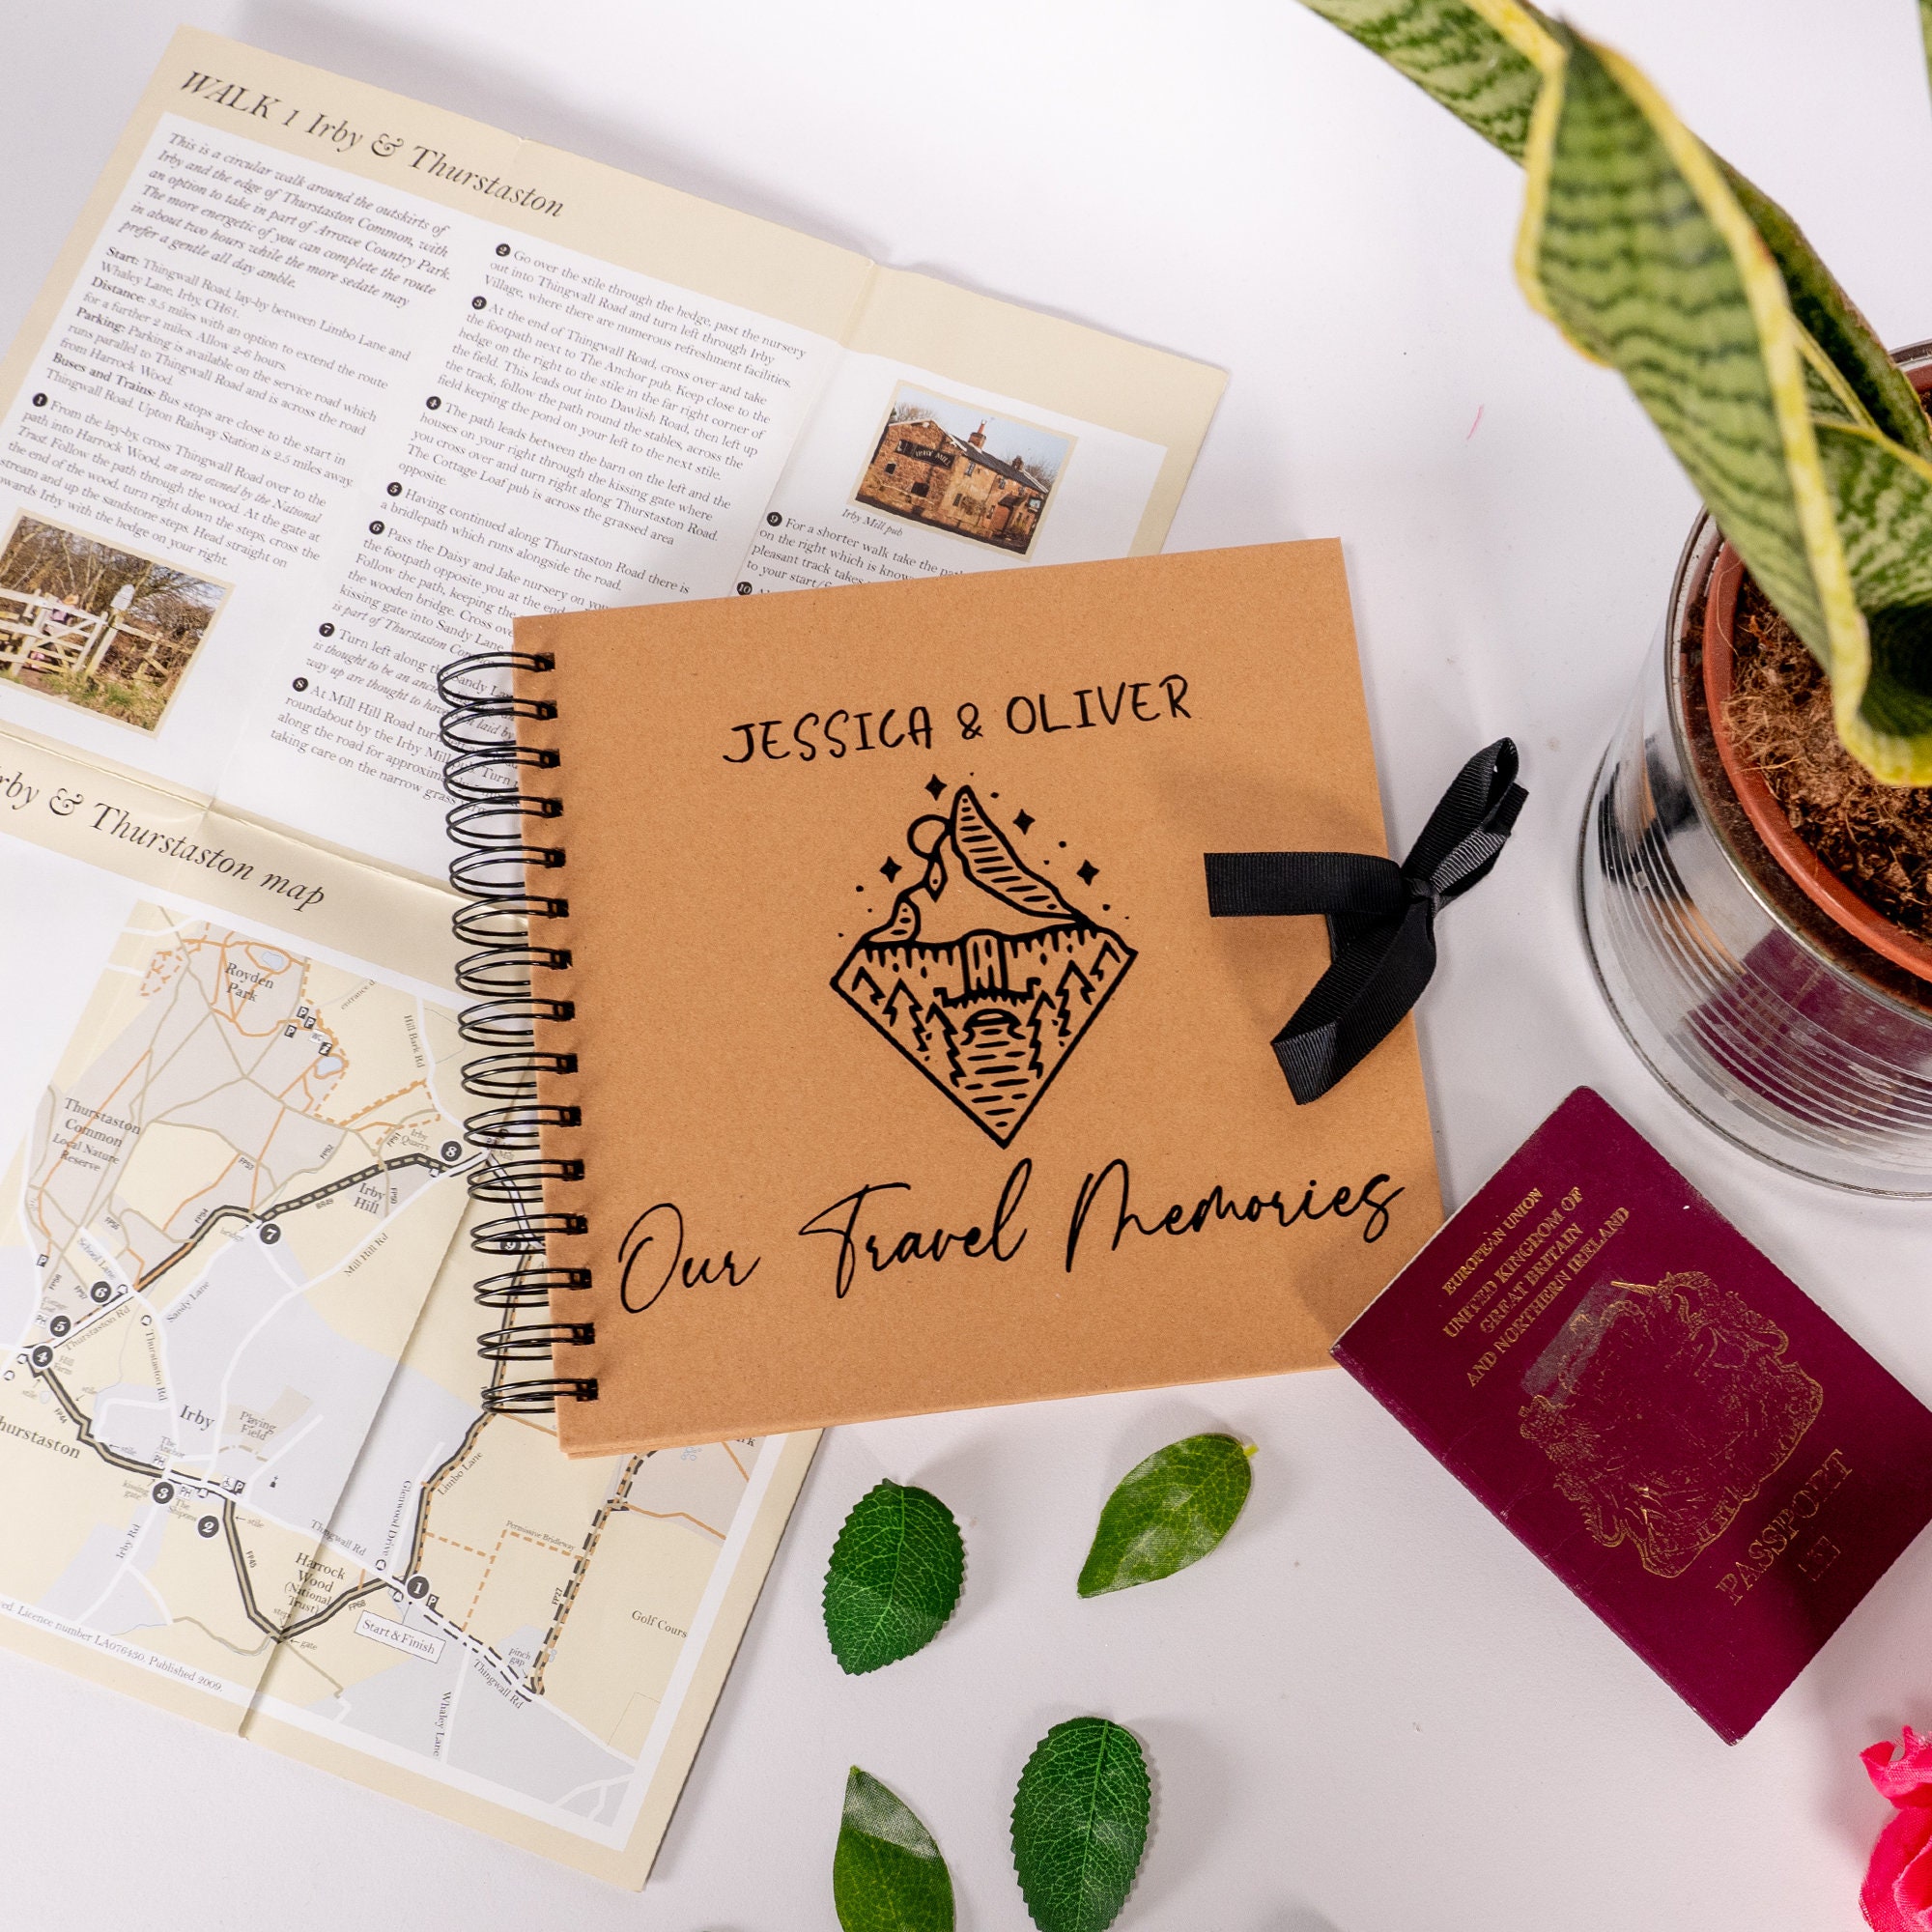 WALK 1 Irby & Thurstaston
This is a circular walk around the outskirts of
Irby and the edge of Thurstaston Common, with
an option to take in part of Arrowe Country Park.
The more energetic of you can complete the route
in about two hours while the more sedate may
prefer a gentle all day amble.
Start: Thingwall Road, lay-by between Limbo Lane and
Whaley Lane, Irby, CH61.
Distance: 3.5 miles with an option to extend the route
for a further 2 miles. Allow 2-6 hours.
Parking: Parking is available on the service road which
runs parallel to Thingwall Road and is across the road
from Harrock Wood.
Buses and Trains: Bus stops are close to the start in
Thingwall Road. Upton Railway Station is 2.5 miles away.
1 From the lay-by, cross Thingwall Road over to the
path into Harrock Wood, an area owned by the National
Trust. Follow the path through the wood. At the gate at
the end of the wood, turn right down the steps, cross the
stream and up the sandstone steps. Head straight on
towards Irby with the hedge on your right.
2 Go over the stile through the hedge, past the nursery
out into Thingwall Road and turn left through Irby
Village, where there are numerous refreshment facilities.
3 At the end of Thingwall Road, cross over and take
the footpath next to The Anchor pub. Keep close to the
hedge on the right to the stile in the far right corner of
the field. This leads out into Dawlish Road, then left up
the track, follow the path round the stables, across the
field keeping the pond on your left to the next stile.
4 The path leads between the barn on the left and the
houses on your right through the kissing gate where
you cross over and turn right along Thurstaston Road.
The Cottage Loaf pub is across the grassed area
opposite.
5 Having continued along Thurstaston Road there is
a bridlepath which runs alongside the road.
6 Pass the Daisy and Jake nursery on you
the footpath opposite you at the end
Follow the path, keeping the
the wooden bridge. Cross ove
kissing gate into Sandy Lane
is part of Thurstaston Com
7 Turn left along the Sandy La
is thought to be an ancie
way up are thought to have laid by
8 At Mill Hill Road turn
roundabout by the Irby Mill pub. Turn
along the road for approxim
taking care on the narrow grass verge
Irby Mill pub
9 For a shorter walk take the pa
on the right which is know
pleasant track takes
to your start/f
10
JESSICA & OLIVER
Our Travel Memories
rby & Thurstaston map
Royden
Park
entrance
Hill Bark Rd
Thurstaston
Common
Local Nature
Reserve
Irby
Quarry
8
Irby
Hill
7
Mill Hill Rd
Sandy Lane
School Lane
6
5
Thurstaston Rd
4
Hill
Farm
stile
Thurstaston Rd
9
hurstaston
Irby
Playing
Field
The
Anchor
PH
kissing
gate
3
PH
The
Shippons
2
stile
Irby Rd
Thingwall Rd
Glenwood Drive
Limbo Lane
Permissive Bridleway
FP45
FP27
Harrock
Wood
(National
Trust)
steps
gate
1
P
Start & Finish
pinch
gap
Thingwall Rd
Whaley Lane
Golf Cours
ed. Licence number LA076430. Published 2009.
EUROPEAN UNION
UNITED KINGDOM OF
GREAT BRITAIN
AND NORTHERN IRELAND
PASSPORT